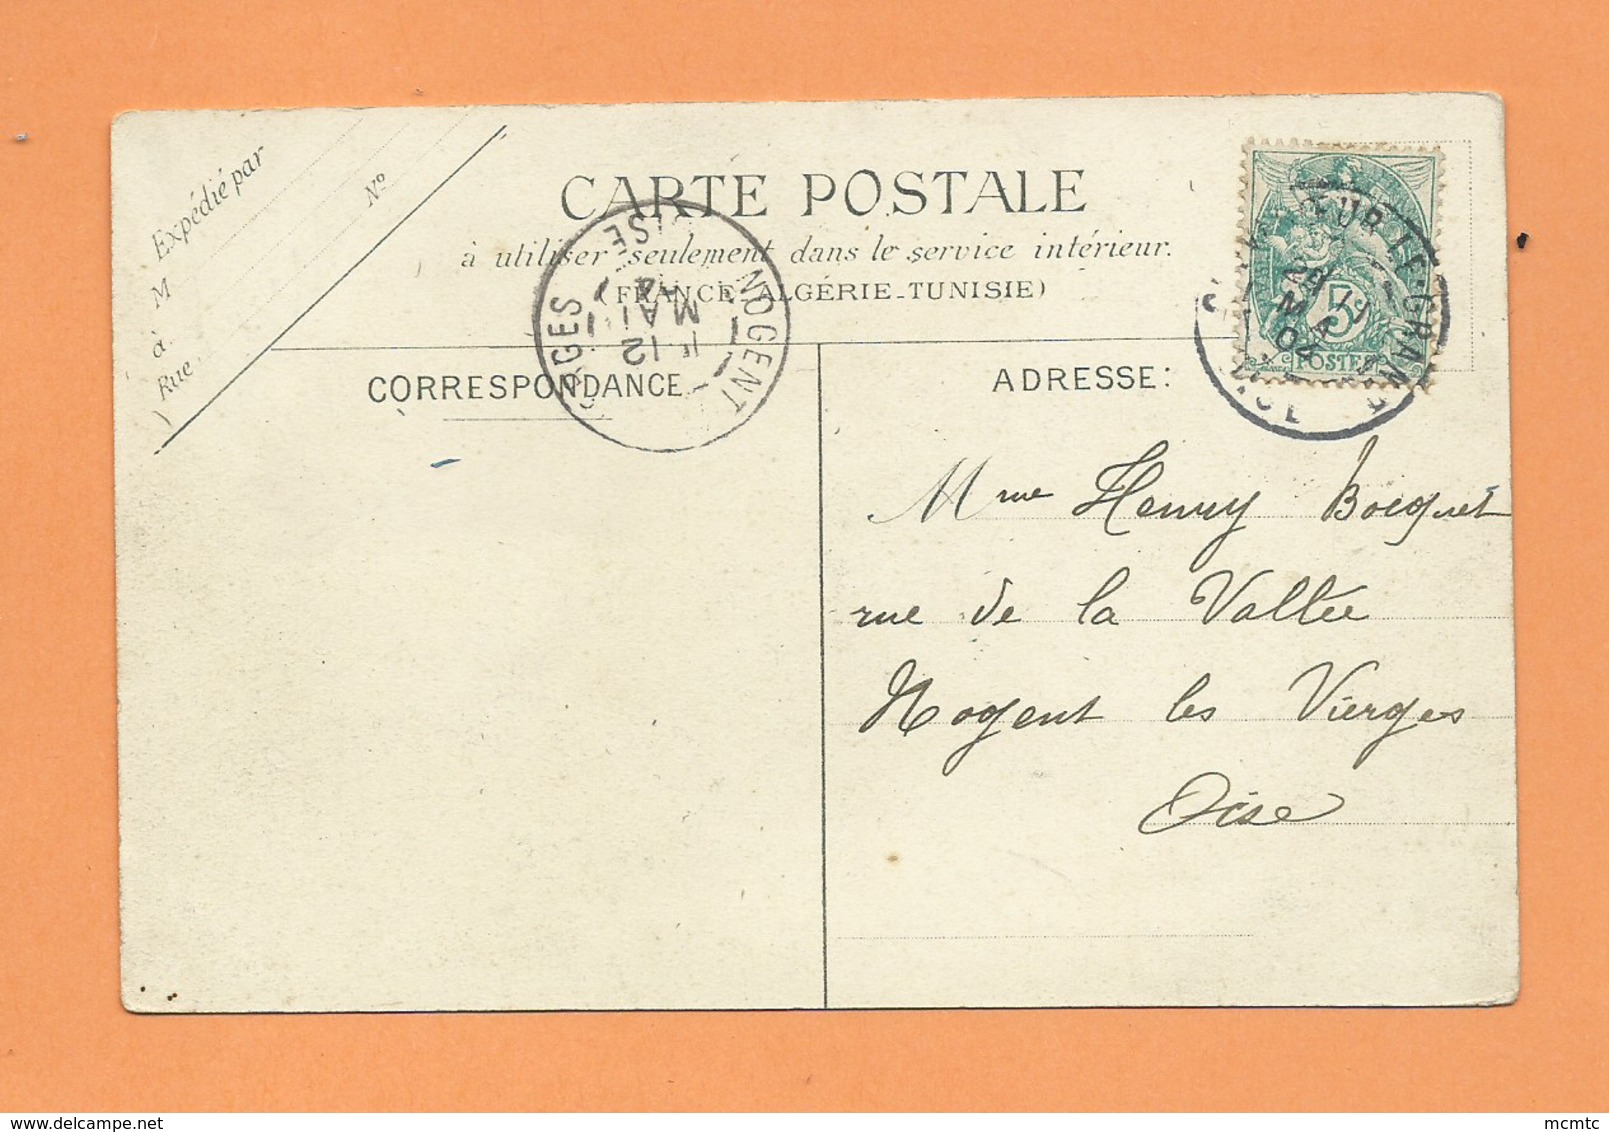 Expédié par
M
à
Rue
N°
CARTE POSTALE
à utiliser seulement dans le service intérieur.
(FRANCE-ALGÉRIE-TUNISIE)
CORRESPONDANCE
ADRESSE:
NOGENT
OISE
12
MAI
5
POSTES
LE-GRAND
11
MAI
04
Mme Henry Bocquet
rue de la Vallée
Nogent les Vierges
Oise
delcampe.net
mcmtc